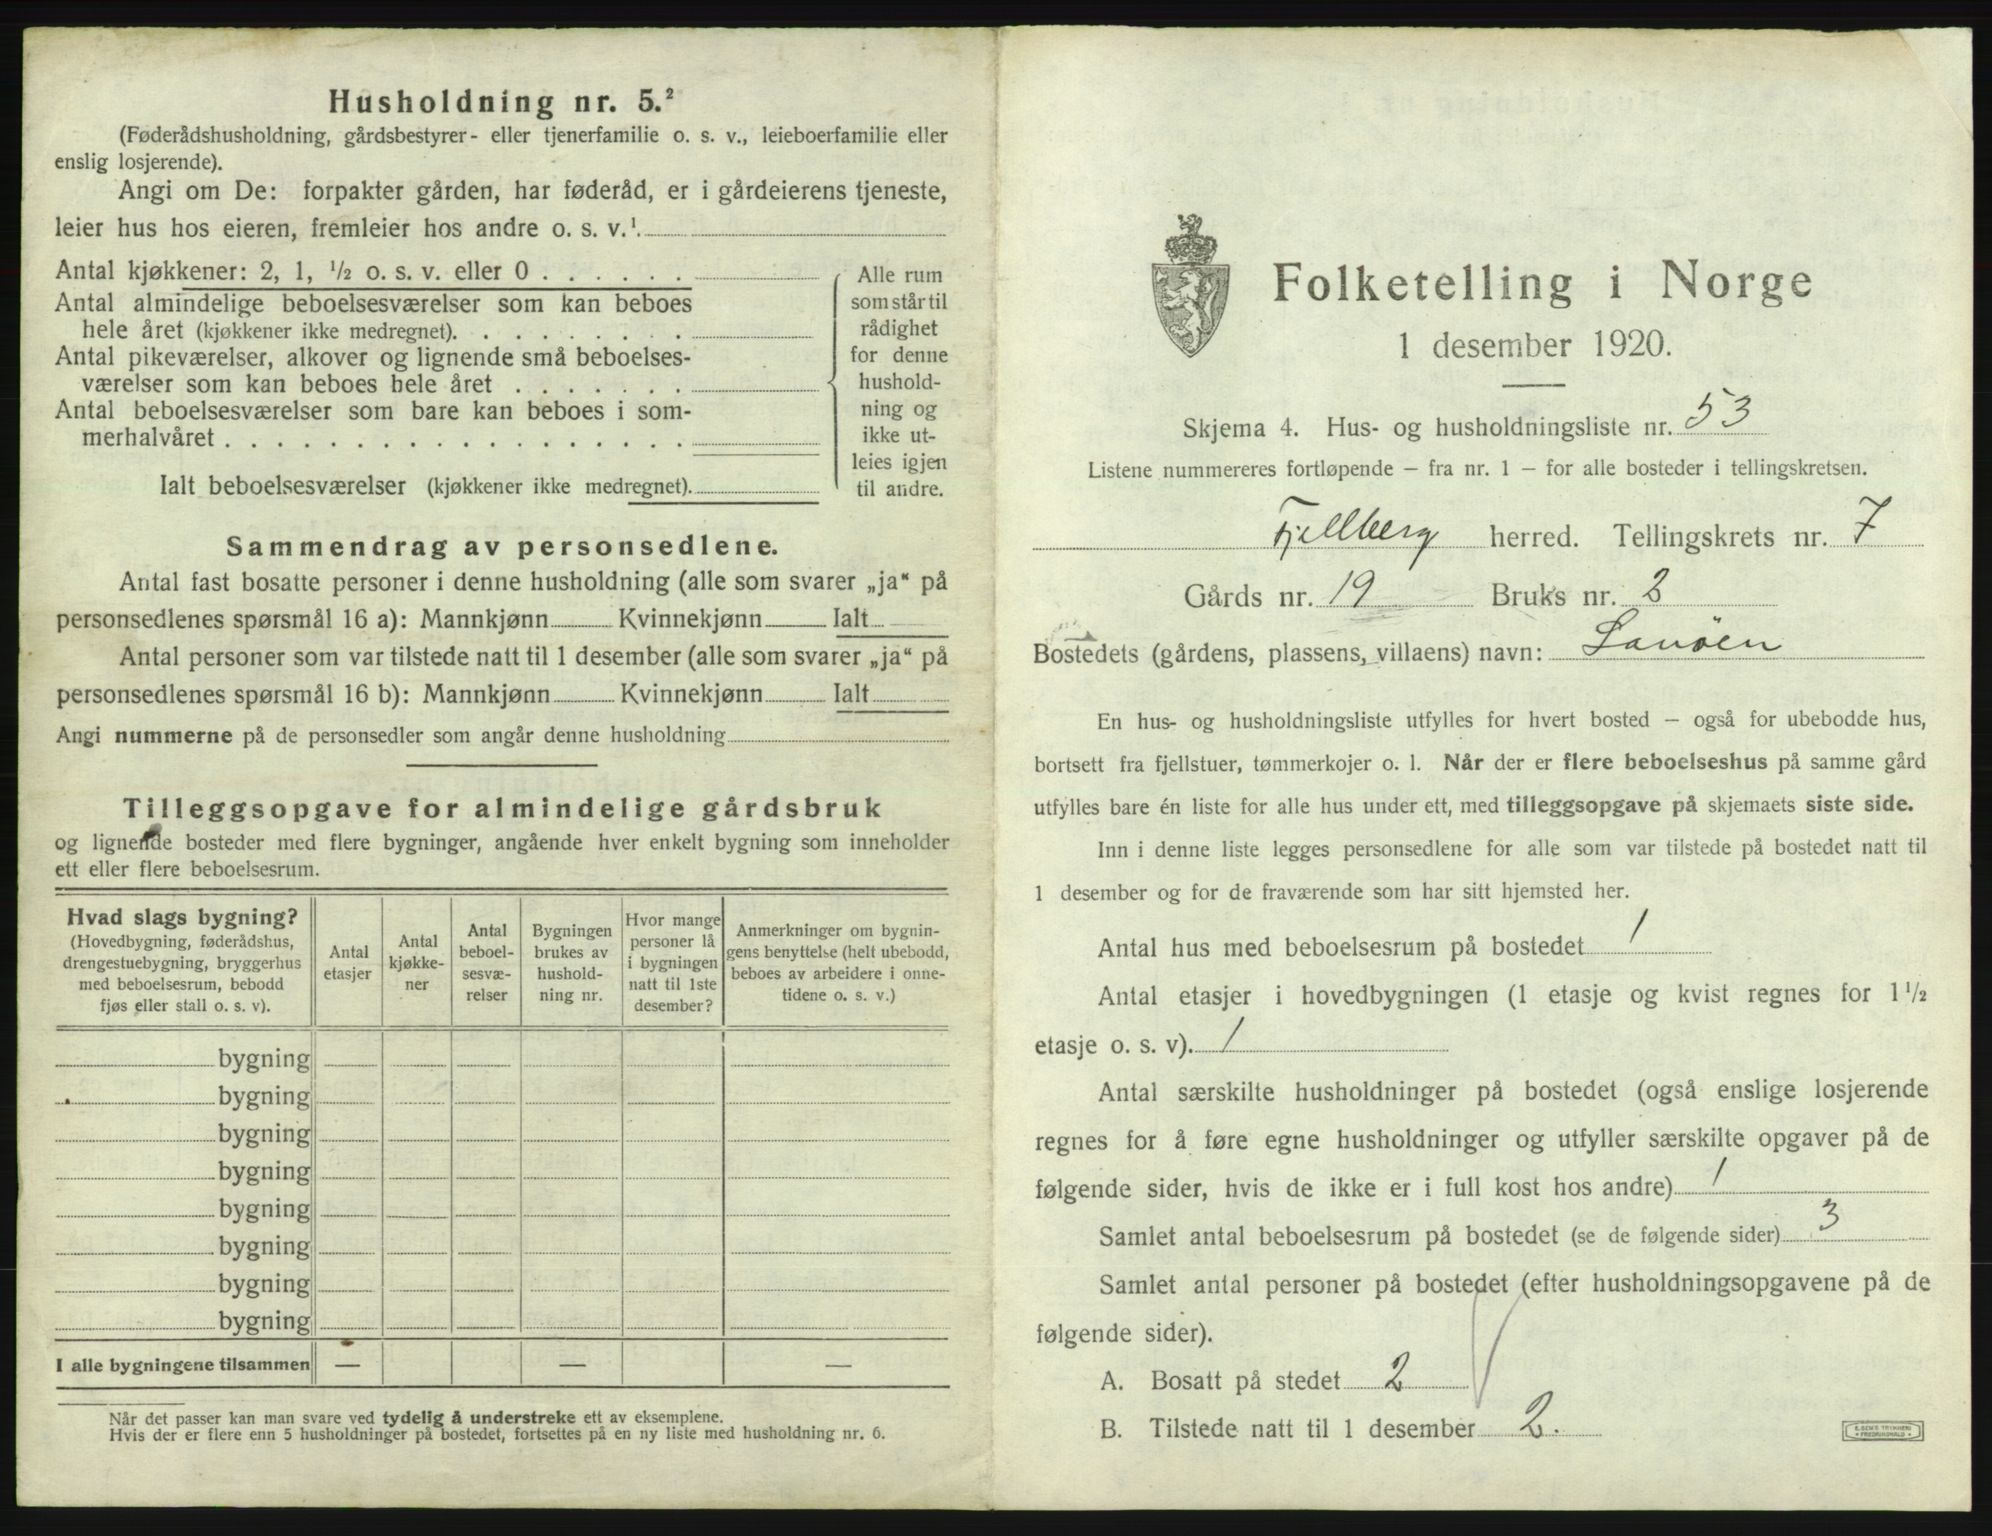 Husholdning nr. 5.²
(Føderådshusholdning, gårdsbestyrer- eller tjenerfamilie o. s. v., leieboerfamilie eller
enslig losjerende).
Angi om De: forpakter gården, har føderåd, er i gårdeierens tjeneste,
leier hus hos eieren, fremleier hos andre o. s. v.¹.
Antal kjøkkener: 2, 1, ½ o. s. v. eller 0 . . . . . .
Antal almindelige beboelsesværelser som kan beboes
hele året (kjøkkener ikke medregnet). . . . . . . . .
Antal pikeværelser, alkover og lignende små beboelses-
værelser som kan beboes hele året . . . . . . .
Antal beboelsesværelser som bare kan beboes i som-
merhalvåret . . . . . . . . . . . . . . . . . .
Ialt beboelsesværelser (kjøkkener ikke medregnet).
Alle rum
som står til
rådighet
for denne
hushold-
ning og
ikke ut-
leies igjen
til andre.
Sammendrag av personsedlene.
Antal fast bosatte personer i denne husholdning (alle som svarer „ja“ på
personsedlenes spørsmål 16 a): Mannkjønn Kvinnekjønn Ialt
Antal personer som var tilstede natt til 1 desember (alle som svarer „ja“ på
personsedlenes spørsmål 16 b): Mannkjønn Kvinnekjønn Ialt
Angi nummerne på de personsedler som angår denne husholdning
Tilleggsopgave for almindelige gårdsbruk
og lignende bosteder med flere bygninger, angående hver enkelt bygning som inneholder
ett eller flere beboelsesrum.
Hvad slags bygning?
(Hovedbygning, føderådshus,
drengestuebygning, bryggerhus
med beboelsesrum, bebodd
fjøs eller stall o. s. v).
Antal
etasjer
Antal
kjøkke-
ner
Antal
beboel-
sesvæ-
relser
Bygningen
brukes av
hushold-
ning nr.
Hvor mange
personer lå
i bygningen
natt til 1ste
desember?
Anmerkninger om bygnin-
gens benyttelse (helt ubebodd,
beboes av arbeidere i onne-
tidene o. s. v.)
bygning
bygning
bygning
bygning
bygning
bygning
bygning
bygning
I alle bygningene tilsammen — — —
Når det passer kan man svare ved tydelig å understreke ett av eksemplene.
Hvis der er flere enn 5 husholdninger på bostedet, fortsettes på en ny liste med husholdning nr. 6.
Folketelling i Norge
1 desember 1920.
Skjema 4. Hus- og husholdningsliste nr. 53
Listene nummereres fortløpende – fra nr. 1 – for alle bosteder i tellingskretsen.
Fjellberg herred. Tellingskrets nr. 7
Gårds nr. 19 Bruks nr. 2
Bostedets (gårdens, plassens, villaens) navn:
En hus- og husholdningsliste utfylles for hvert bosted – også for ubebodde hus,
bortsett fra fjellstuer, tømmerkojer o. l. Når der er flere beboelseshus på samme gård
utfylles bare én liste for alle hus under ett, med tilleggsopgave på skjemaets siste side.
Inn i denne liste legges personsedlene for alle som var tilstede på bostedet natt til
1 desember og for de fraværende som har sitt hjemsted her.
Antal hus med beboelsesrum på bostedet 1
Antal etasjer i hovedbygningen (1 etasje og kvist regnes for 1½
etasje o. s. v). 1
Antal særskilte husholdninger på bostedet (også enslige losjerende
regnes for å føre egne husholdninger og utfyller særskilte opgaver på de
følgende sider, hvis de ikke er i full kost hos andre) 1
Samlet antal beboelsesrum på bostedet (se de følgende sider) 3
Samlet antal personer på bostedet (efter husholdningsopgavene på de
følgende sider).
A. Bosatt på stedet 2
B. Tilstede natt til 1 desember 2.